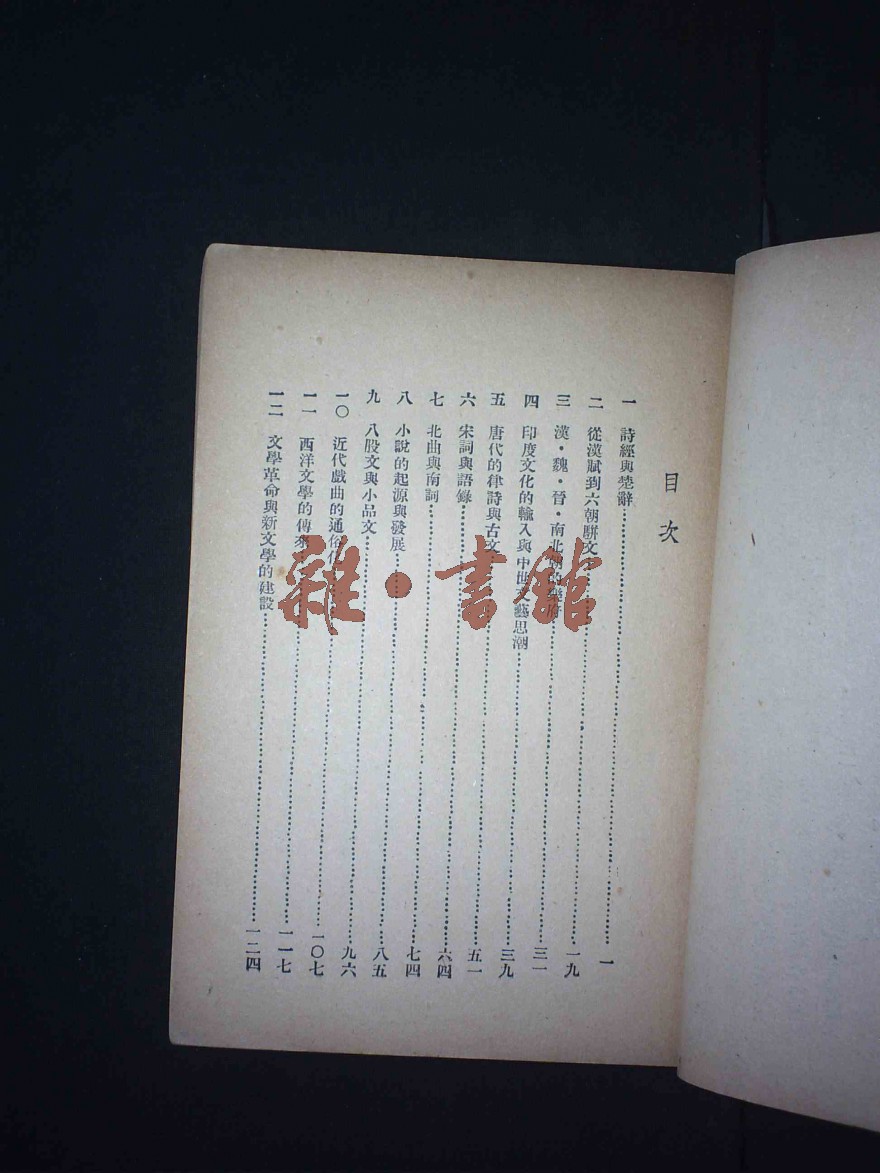 目次
一 詩經與楚辭 一
二 從漢賦到六朝駢文 一九
三 漢・魏・晉・南北朝的樂府 三一
四 印度文化的輸入與中世文藝思潮 三九
五 唐代的律詩與古文 五一
六 宋詞與語錄 六四
七 北曲與南詞 七四
八 小說的起源與發展 八五
九 八股文與小品文 九六
一〇 近代戲曲的通俗化 一〇七
一一 西洋文學的傳來 一一七
一二 文學革命與新文學的建設 一二四
雜・書館